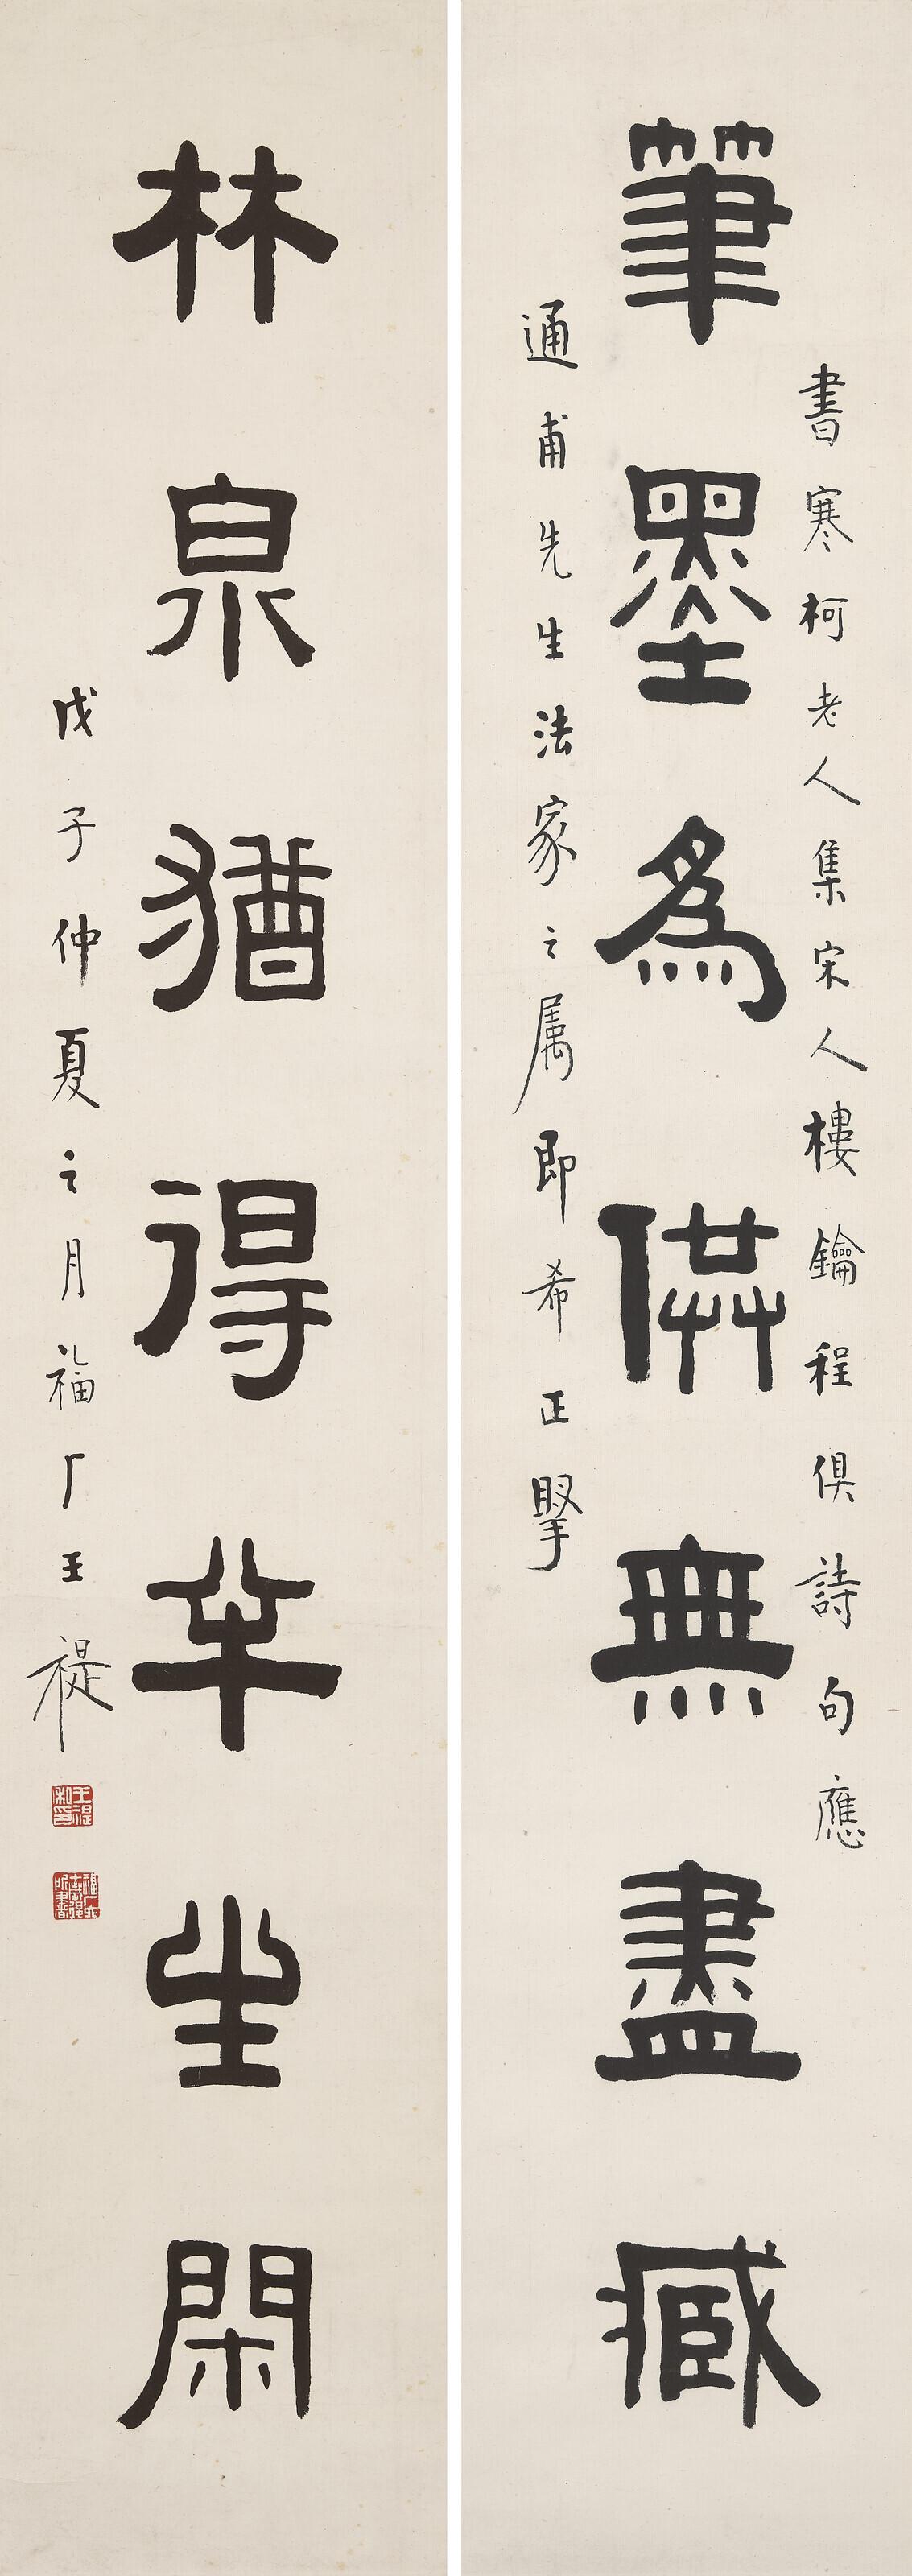 書寒柯老人集宋人樓鑰程俱詩句應
筆墨為供無盡臧
通甫先生法家之属即希正擥
林泉猶得半生閑
戊子仲夏之月福厂王禔
王禔私印